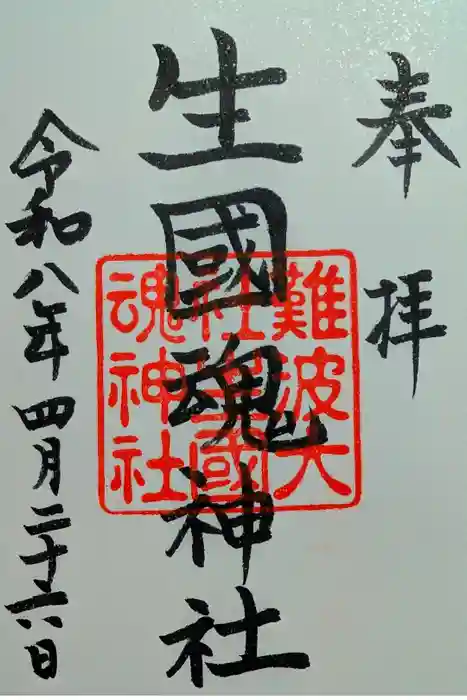 奉拝
生國魂神社
難波大
社生國
魂神社
令和八年四月二十六日